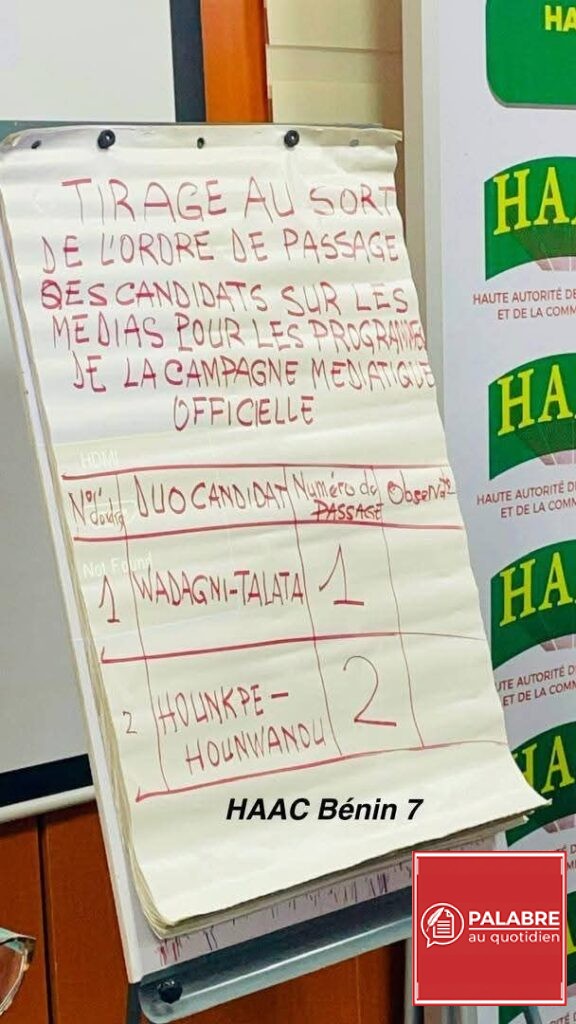 TIRAGE AU SORT
DE L'ORDRE DE PASSAGE
DES CANDIDATS SUR LES
MEDIAS POUR LES PROGRAMMES
DE LA CAMPAGNE MEDIATIQUE
OFFICIELLE
HDMI
DUO CANDIDAT Numéro de PASSAGE
Not Found
1 WADAGNI-TALATA 1
2 HOUNKPE-
HOUNWANOU 2
HAAC Bénin 7
PALABRE
au quotidien
HA
HA
HAUTE AUTORITÉ DE
ET DE LA COMM
HA
HAUTE AUTORITÉ DE
ET DE LA COMM
HA
TE AUTORITÉ D
ET DE LA COMM